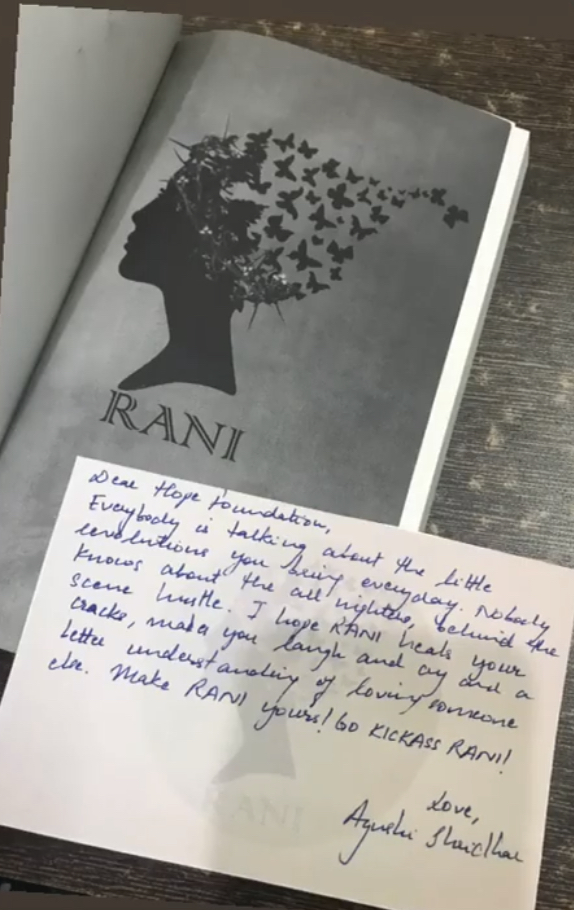 RANI
Dear Hope Foundation,
Everybody is talking about the little
revolutions you bring everyday. Nobody
knows about the all nighters, behind the
scene hustle. I hope RANI heals your
cracks, makes you laugh and cry and a
better understanding of loving someone
else. Make RANI yours! Go KICKASS RANI!
Love,
Ayushi
RANI